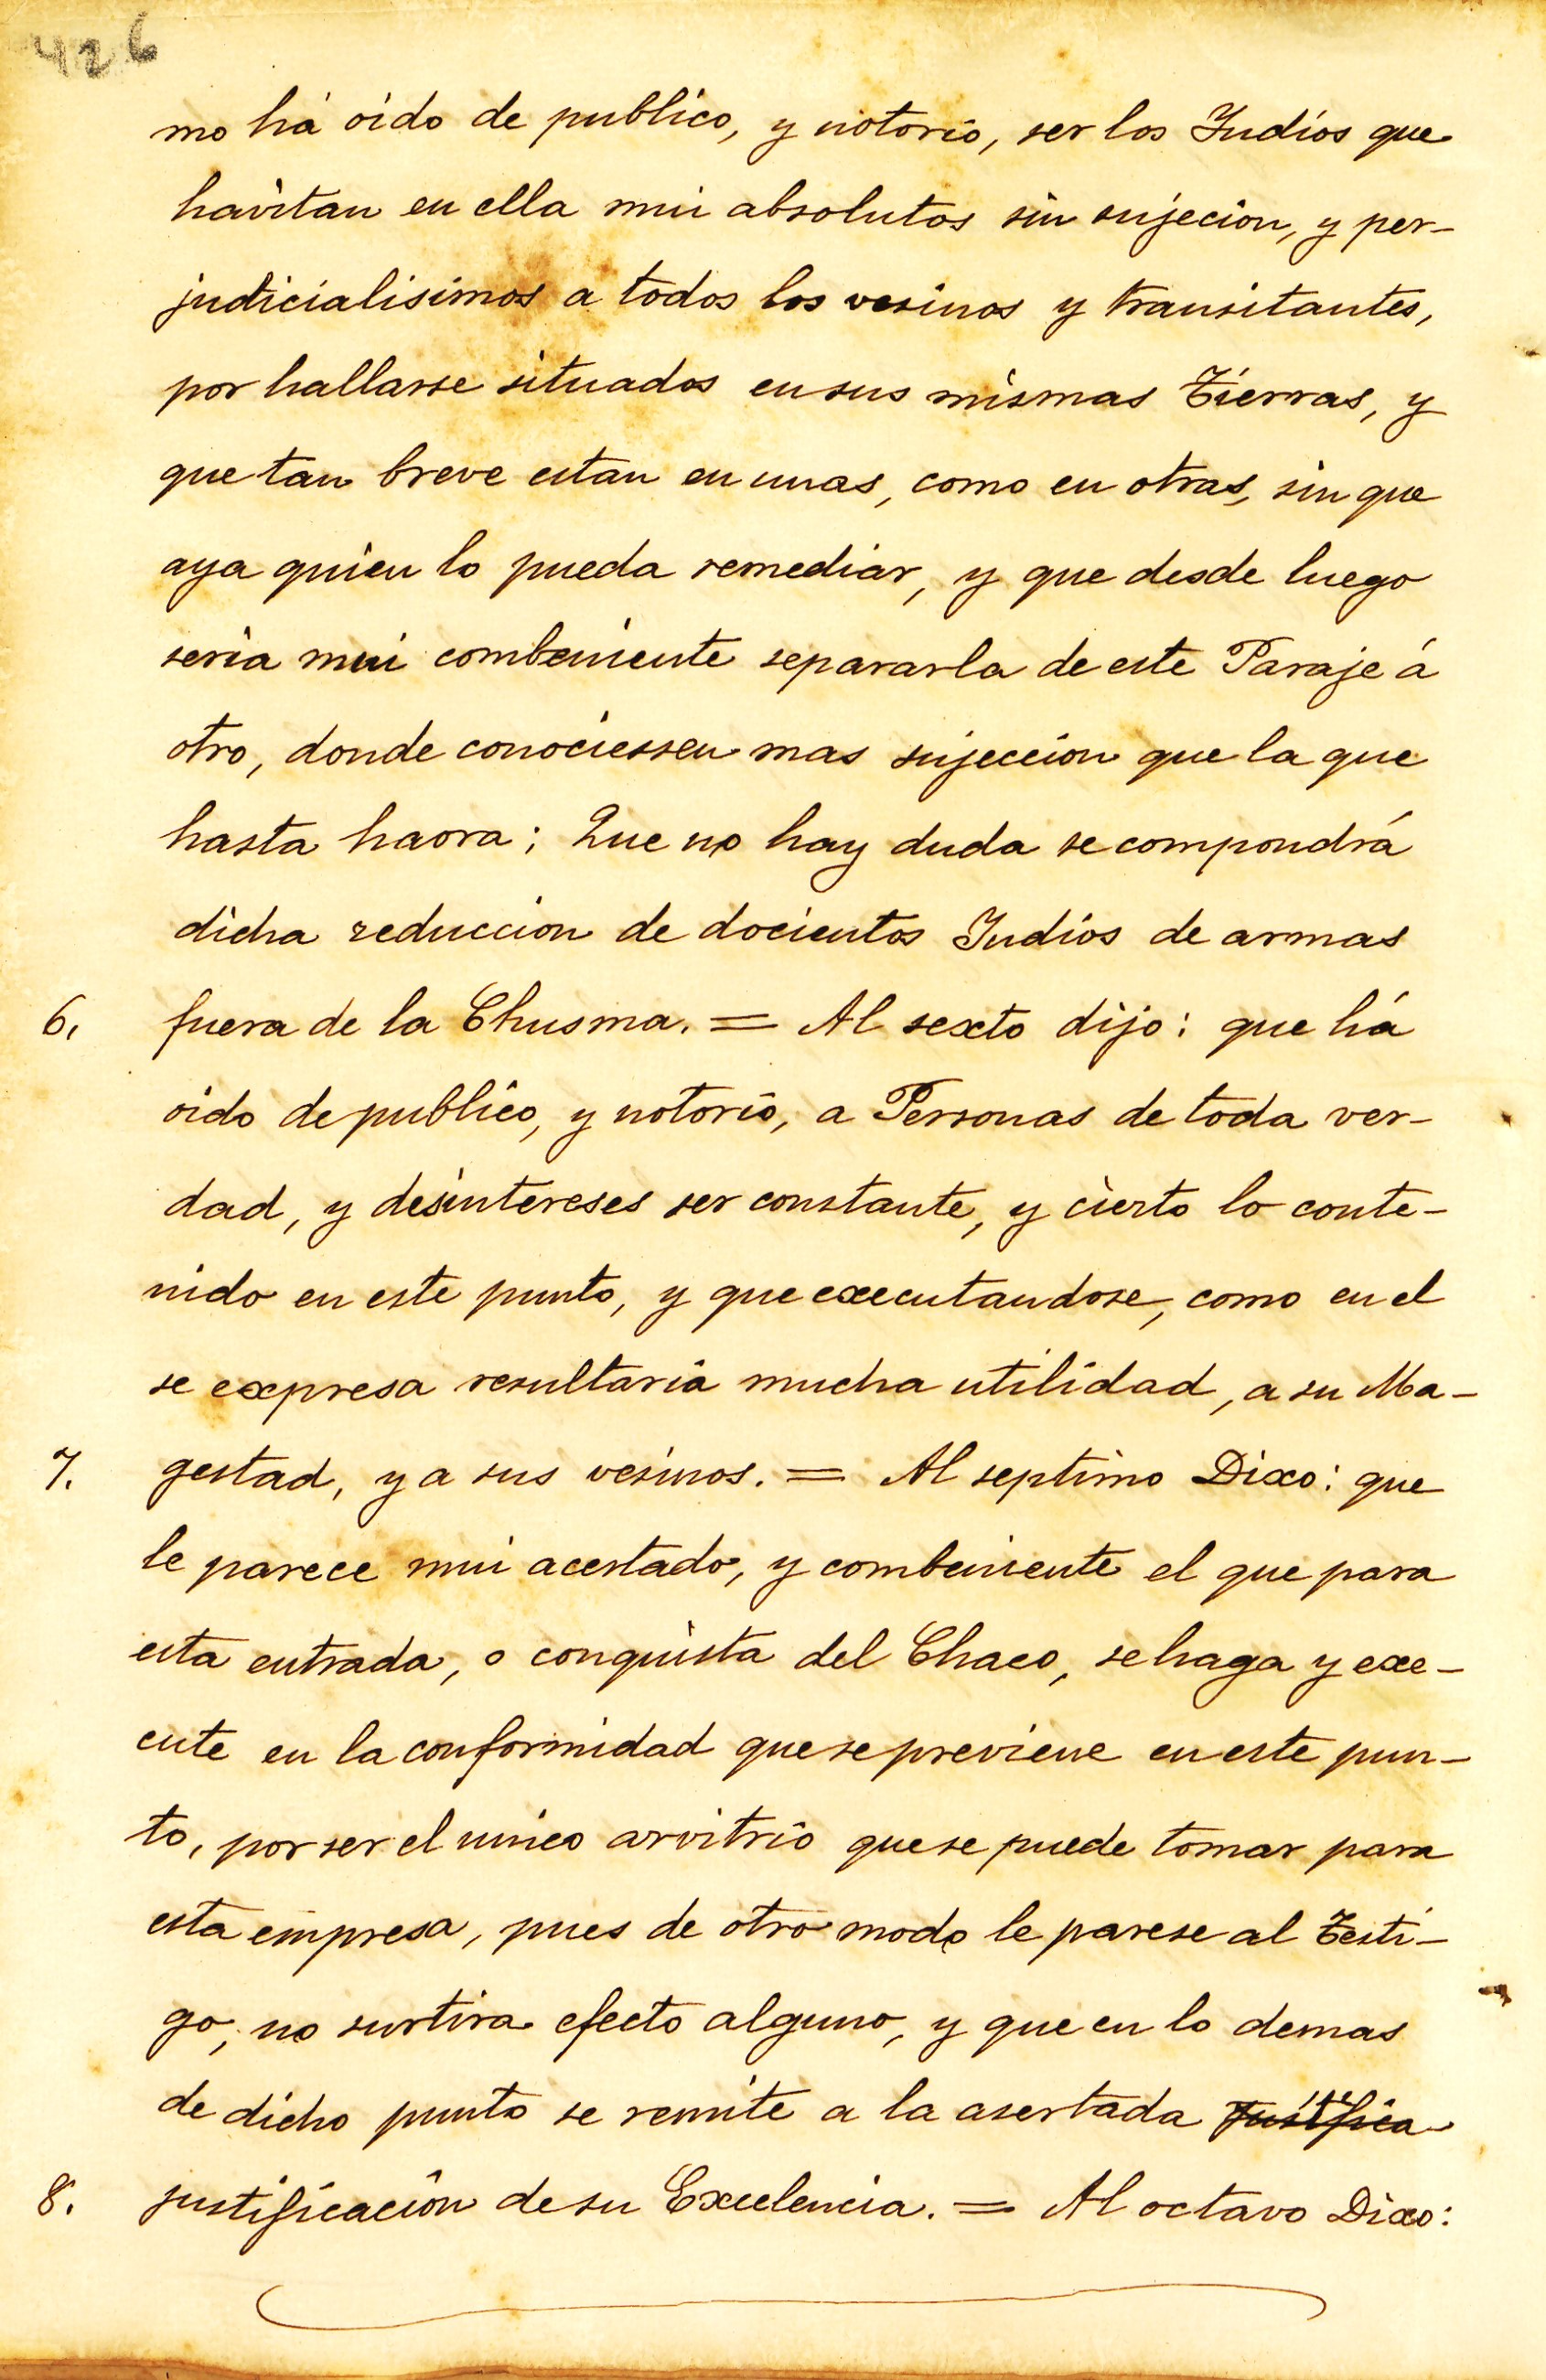 426
mo há oido de publico, y notorio, ser los Indios que
havitan en ella mui absolutos sin sujecion, y per-
judicialisimos a todos los vesinos y transitantes,
por hallarse situados en sus mismas Tierras, y
que tan breve estan en unas, como en otras, sin que
aya quien lo pueda remediar, y que desde luego
seria mui combeniente separarla de este Paraje á
otro, donde conociessen mas sujeccion que la que
hasta haora; Que no hay duda se compondrá
dicha reduccion de docientos Indios de armas
6. fuera de la Chusma. = Al sexto dijo: que há
oido de publico, y notorio, a Personas de toda ver-
dad, y desintereses ser constante, y cierto lo conte-
nido en este punto, y que executandose, como en el
se expresa resultaria mucha utilidad, a su Ma-
7. gestad, y a sus vesinos. = Al septimo Dixo: que
le parece mui acertado, y combeniente el que para
esta entrada, o conquista del Chaco, se haga y exe-
cute en la conformidad que se previene en este pun-
to, por ser el unico arvitrio que se puede tomar para
esta empresa, pues de otro modo le parese al Testi-
go, no surtira efecto alguno, y que en lo demas
de dicho punto se remite a la asertada justifica
8. justificacion de su Excelencia. = Al octavo Dixo: